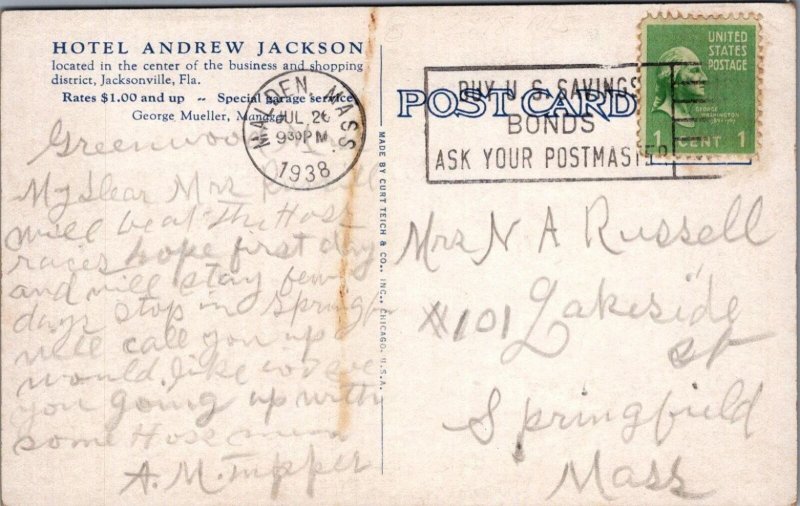 HOTEL ANDREW JACKSON
located in the center of the business and shopping
district, Jacksonville, Fla.
Rates $1.00 and up ~ Special garage service
George Mueller, Manager
MALDEN, MASS.
JUL 26
930PM
1938
POST CARD
BUY U S SAVINGS
BONDS
ASK YOUR POSTMASTER
UNITED
STATES
POSTAGE
GEORGE
WASHINGTON
1 CENT 1
MADE BY CURT TEICH & CO., INC., CHICAGO, U.S.A.
Greenwood
My Dear Mrs Russell
will be at the Hoss
races hope first day
and will stay few
days stop in Springf
will call you up
would like to see
you going up with
some Hoss men
A. M. Tupper
Mrs N A Russell
#101 Lakeside
st
Springfield
Mass